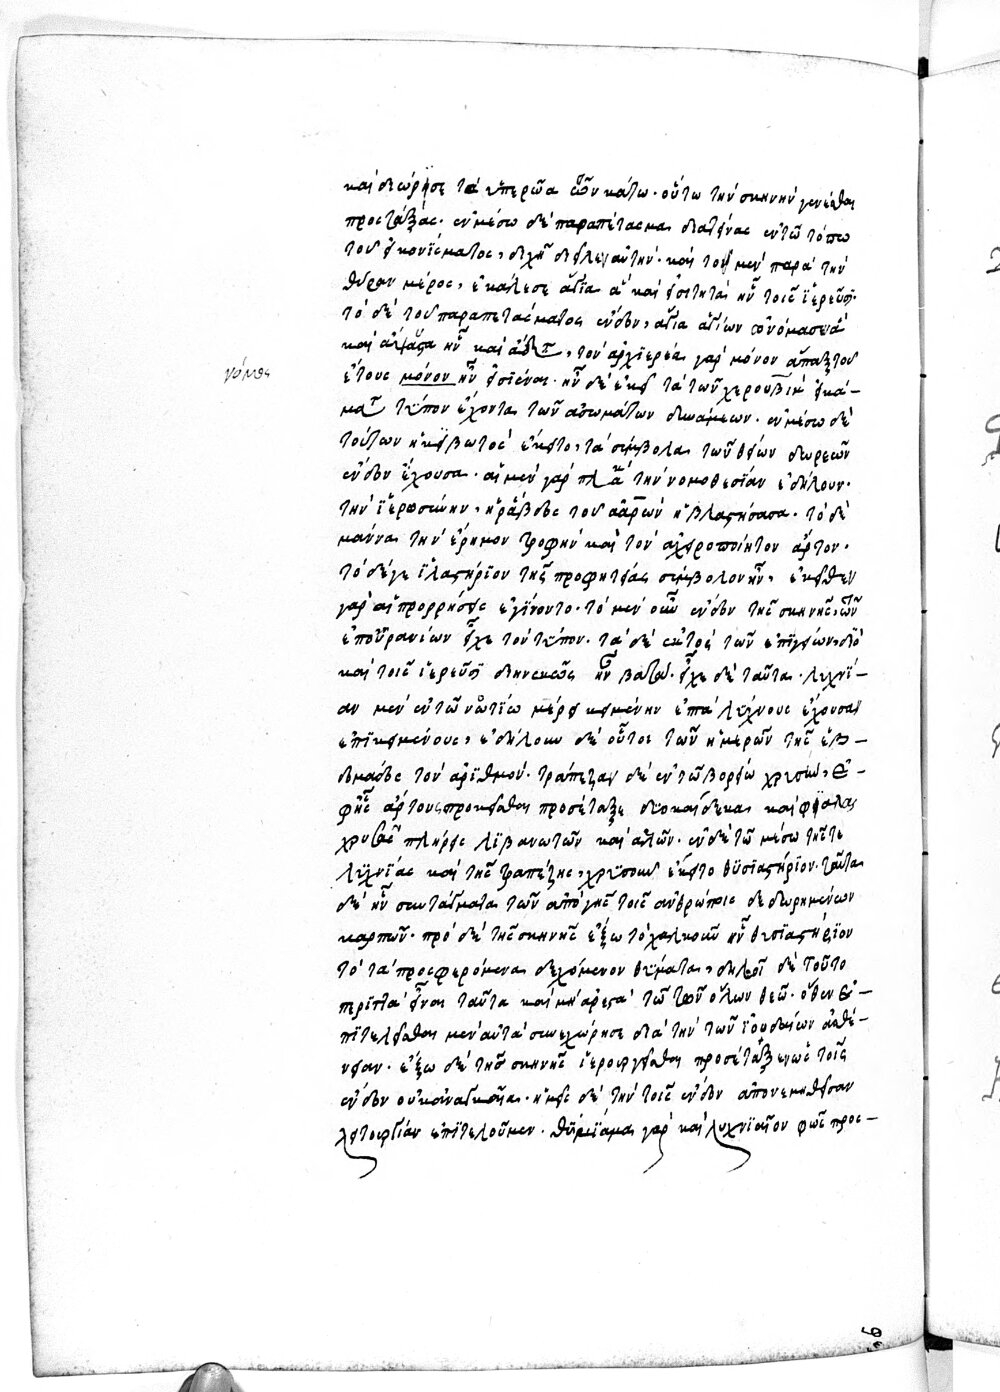 καὶ διώρισε τὰ ὑπερῶα τῶν κάτω· οὕτω τὴν σκηνὴν γενέσθαι
προστάξας· ἐν μέσω δὲ παραπέτασμα διατείνας ἐν τῶ τόπω
τοῦ εἰκονίσματος, διχῆ διεῖλεν αὐτήν· καὶ τὸ μὲν παρὰ τὴν
θύραν μέρος, ἐκάλεσε ἅγια ἃ καὶ εἰσιτητὰ ἦν τοῖς ἱερεῦσι·
τὸ δὲ τοῦ παραπετάσματος ἔνδον, ἅγια ἁγίων ὠνόμασεν ἃ
καὶ ἄψαυστα ἦν καὶ ἄδυτα, τὸν ἀρχιερέα γὰρ μόνον ἅπαξ τοῦ
νόμος
ἔτους μόνον ἦν εἰσϊέναι· ἦν δὲ ἐκεῖ τὰ τῶν χερουβὶμ εἰκά-
ματα τύπον ἔχοντα τῶν ἀσωμάτων δυνάμεων· ἐν μέσω δὲ
τούτων ἡ κιβωτὸς ἔκειτο, τὰ σύμβολα τῶν θείων δωρεῶν
ἔνδον ἔχουσα· αἱ μὲν γὰρ πλάκες τὴν νομοθεσΐαν ἐδήλουν·
τὴν ἱερωσύνην, ἡ ῥάβδος τοῦ ἀαρὼν ἡ βλαστήσασα· τὸ δὲ
μάννα τὴν ἔρημον τροφὴν καὶ τὸν ἀχειροποίητον ἄρτον·
τὸ δέ γε ἱλαστήριον τῆς προφητείας σύμβολον ἦν, ἐκεῖθεν
γὰρ αἱ προρρήσεις ἐγίνοντο· τὰ μὲν οὖν ἔνδον τῆς σκηνῆς, τῶν
ἐπουρανίων εἶχε τὸν τύπον· τὰ δὲ ἐκτὸς τῶν ἐπιγείων, διὸ
καὶ τοῖς ἱερεῦσι διηνεκῶς ἦν βατά· εἶχε δὲ ταῦτα· λυχνΐ-
αν μὲν ἐν τῶ νωτίω μέρει κειμένην ἑπτὰ λύχνους ἔχουσαν
ἐπικειμένους, ἐδήλουν δὲ οὗτοι τῶν ἡμερῶν τῆς ἑβ-
δομάδος τὸν ἀριθμόν· τράπεζαν δὲ ἐν τῶ βορείω χρυσῆν, ἐ-
φ' ἧς ἄρτους προκεῖσθαι προσέταξε δυοκαίδεκα καὶ φϊάλας
χρυσᾶς πλήρεις λιβανωτῶν καὶ ἁλῶν· ἐν δὲ τῶ μέσω τῆς τε
λυχνίας καὶ τῆς τραπέζης, χρυσοῦν ἔκειτο θυσιαστήριον· ταῦτα
δὲ ἦν συντάγματα τῶν ἀπὸ γῆς τοῖς ἀνθρώποις δεδωρημένων
καρπῶν· πρὸ δὲ τῆς σκηνῆς ἔξω τὸ χαλκοῦν ἦν θυσιαστήριον
τὸ τὰ προσφερόμενα δεχόμενον θύματα, δηλοῖ δὲ τοῦτο
περιττὰ εἶναι ταῦτα καὶ μὴ ἀρεστὰ τῶ τῶν ὅλων θεῶ· ὅθεν ἐ-
πιτελεῖσθαι μὲν αὐτὰ συνεχώρησε διὰ τὴν τῶν ἰουδαίων ἀσθέ-
νειαν· ἔξω δὲ τῆς σκηνῆς ἱερουργεῖσθαι προσέταξεν ὡς τοῖς
ἔνδον οὐκ ἀναγκαῖα· ἡμεῖς δὲ τὴν τοῖς ἔνδον ἀπονεμηθεῖσαν
λειτουργίαν ἐπιτελοῦμεν· θυμίαμα γὰρ καὶ λυχνιαῖον φῶς προσ-